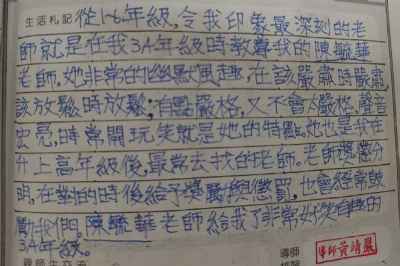 生活札記 從1~6年級,令我印象最深刻的老
師就是在我3.4年級時教導我的陳毓華
老師,她非常的幽默風趣,在該嚴肅時嚴肅,
該放鬆時放鬆,有點嚴格,又不會太嚴格,聲音
宏亮,時常開玩笑就是她的特點,她也是我在
升上高年級後,最常去找的老師。老師獎懲分
明,在對的時後給予獎勵與懲罰,也會經常鼓
勵我們。陳毓華老師給我了非常好的
3.4年級。
導師
導師黃靖嵐